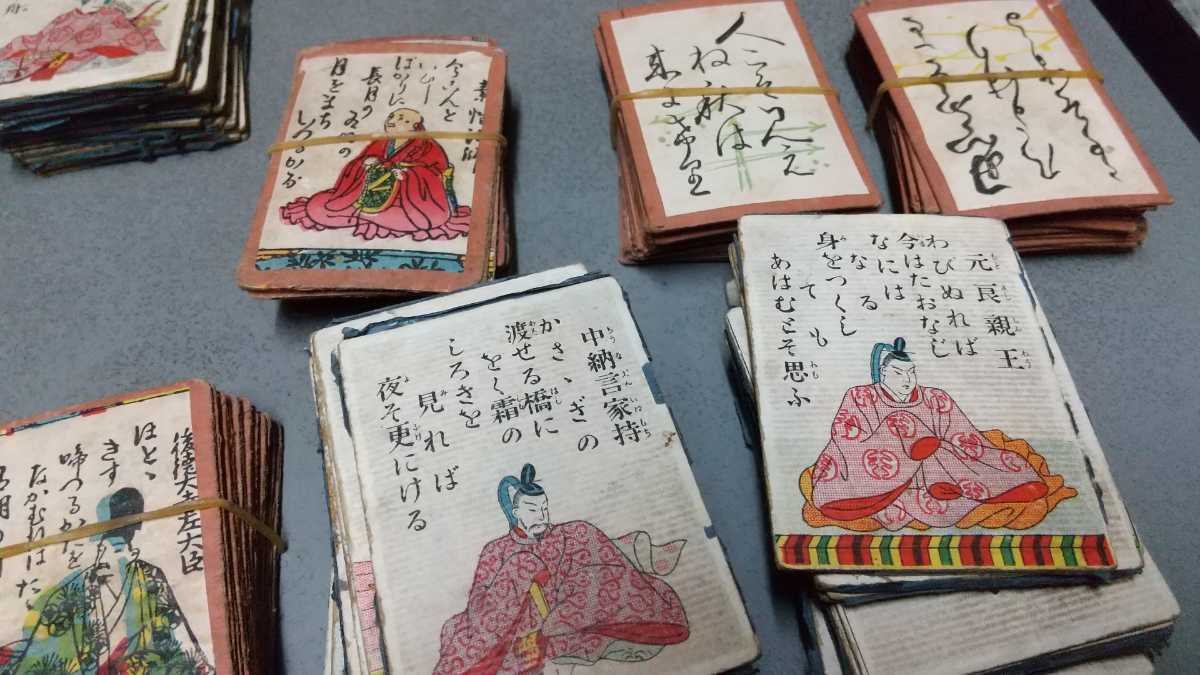 素性法師
今こんと
いひし
ばかりに
長月の
有明の
月をまち
いつるかな
人こそみえ
ね秋は
来にけり
元良親王
わびぬれば
今はたおなじ
なには
なる
身をつくし
ても
あはむとぞ思ふ
中納言家持
かさゝぎの
渡せる橋に
をく霜の
しろきを
見れば
夜ぞ更にける
後徳大寺左大臣
ほとゝ
きす
啼つるかたを
なかむれはたゝ